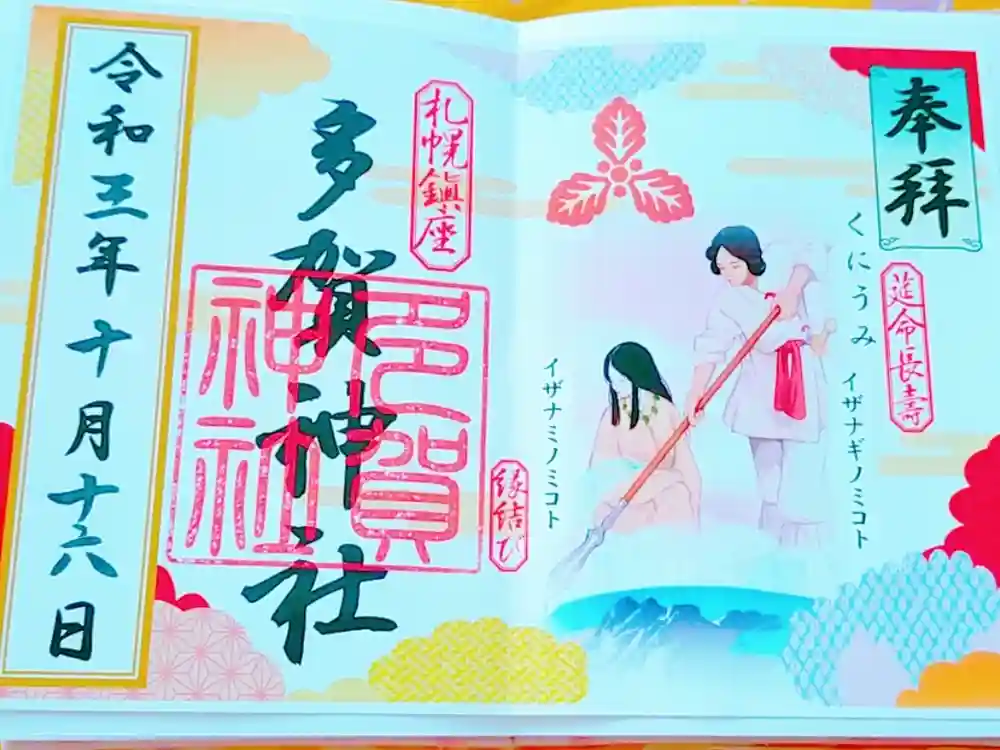 奉拝
延命長壽
くにうみ
イザナギノミコト
イザナミノミコト
縁結び
札幌鎮座
多賀神社
多賀神社
令和三年十月十六日